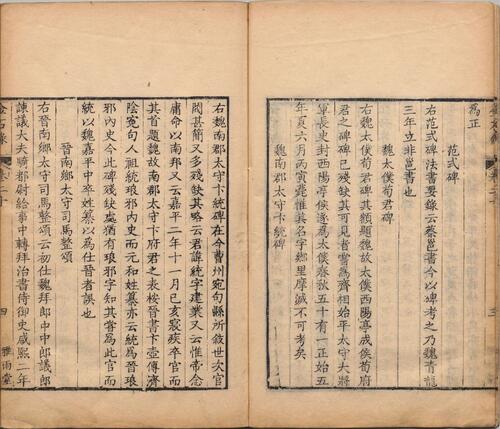 為正
范式碑
右范式碑法書要錄云蔡邕書今以碑考之乃魏青龍
三年立非邕書也
魏太僕荀君碑
右魏太僕荀君碑其額題魏故太僕西陽亭成侯荀府
君之碑碑已殘缺其可見者嘗為齊相始平太守大將
軍長史封西陽亭侯遂為太僕春秋五十有一正始五
年夏六月丙寅薨惟其名字鄉里摩滅不可考矣
魏南郡太守卞統碑
右魏南郡太守卞統碑在今曹州宛句縣所敘世次官
閥甚簡又多殘缺其略云君諱統字建業又云惟帝念
庸命以南邦又云嘉平二年十一月己亥寢疾卒官而
其首題魏故南郡太守卞府君之表桉晉書卞壼傳濟
陰宛句人祖統琅邪內史而元和姓纂亦云統為晉琅
邪內史今此碑殘缺處猶有琅邪字知其嘗為此官而
統以魏嘉平中卒姓纂以為仕晉者誤也
晉南鄉太守司馬整頌
右晉南鄉太守司馬整頌云初仕魏拜郎中中郎議郎
諫議大夫騎都尉給事中轉拜治書侍御史咸熙二年
金石錄 卷二十 四 雅雨堂